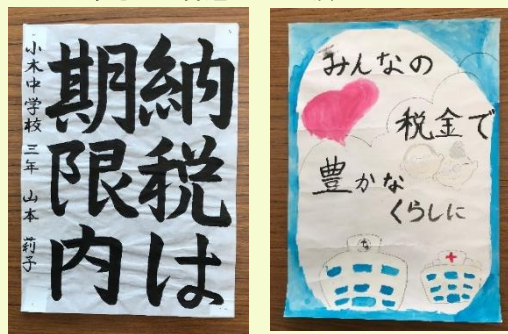 納税は
期限内
小木中学校 三年 山本 莉子
みんなの
税金で
豊かな
くらしに